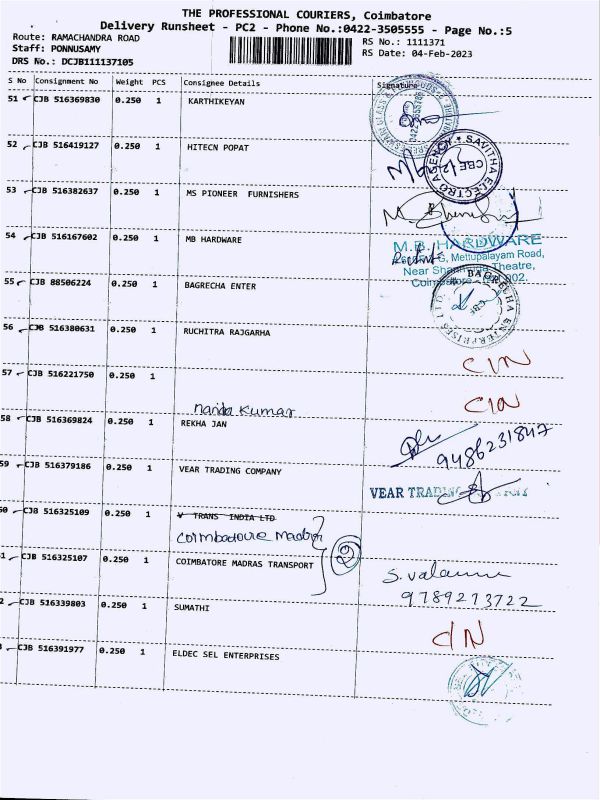 THE PROFESSIONAL COURIERS, Coimbatore
Delivery Runsheet - PC2 - Phone No.:0422-3505555 - Page No.:5
Route: RAMACHANDRA ROAD
RS No.: 1111371
Staff: PONNUSAMY
RS Date: 04-Feb-2023
DRS No.: DCJB111137105
S No Consignment No Weight PCS Consignee Details Signature
51 CJB 516369830 0.250 1 KARTHIKEYAN
52 CJB 516419127 0.250 1 HITECN POPAT
SAVITHA ELECTRO AGENCY CBE-12
53 CJB 516382637 0.250 1 MS PIONEER FURNISHERS
54 CJB 516167602 0.250 1 MB HARDWARE
M.B. HARDWARE
Mettupalayam Road,
Near Theatre,
55 CJB 88506224 0.250 1 BAGRECHA ENTER
BAGRECHA ENTERPRISES LTD.
56 CJB 516380631 0.250 1 RUCHITRA RAJGARHA
CIN
57 CJB 516221750 0.250 1
CIN
Nanda Kumar
58 CJB 516369824 0.250 1 REKHA JAN
9486231847
59 CJB 516379186 0.250 1 VEAR TRADING COMPANY
VEAR TRADING
60 CJB 516325109 0.250 1 V TRANS INDIA LTD
Coimbatore Madras
1 CJB 516325107 0.250 1 COIMBATORE MADRAS TRANSPORT
9789273722
2 CJB 516339803 0.250 1 SUMATHI
CIN
CJB 516391977 0.250 1 ELDEC SEL ENTERPRISES